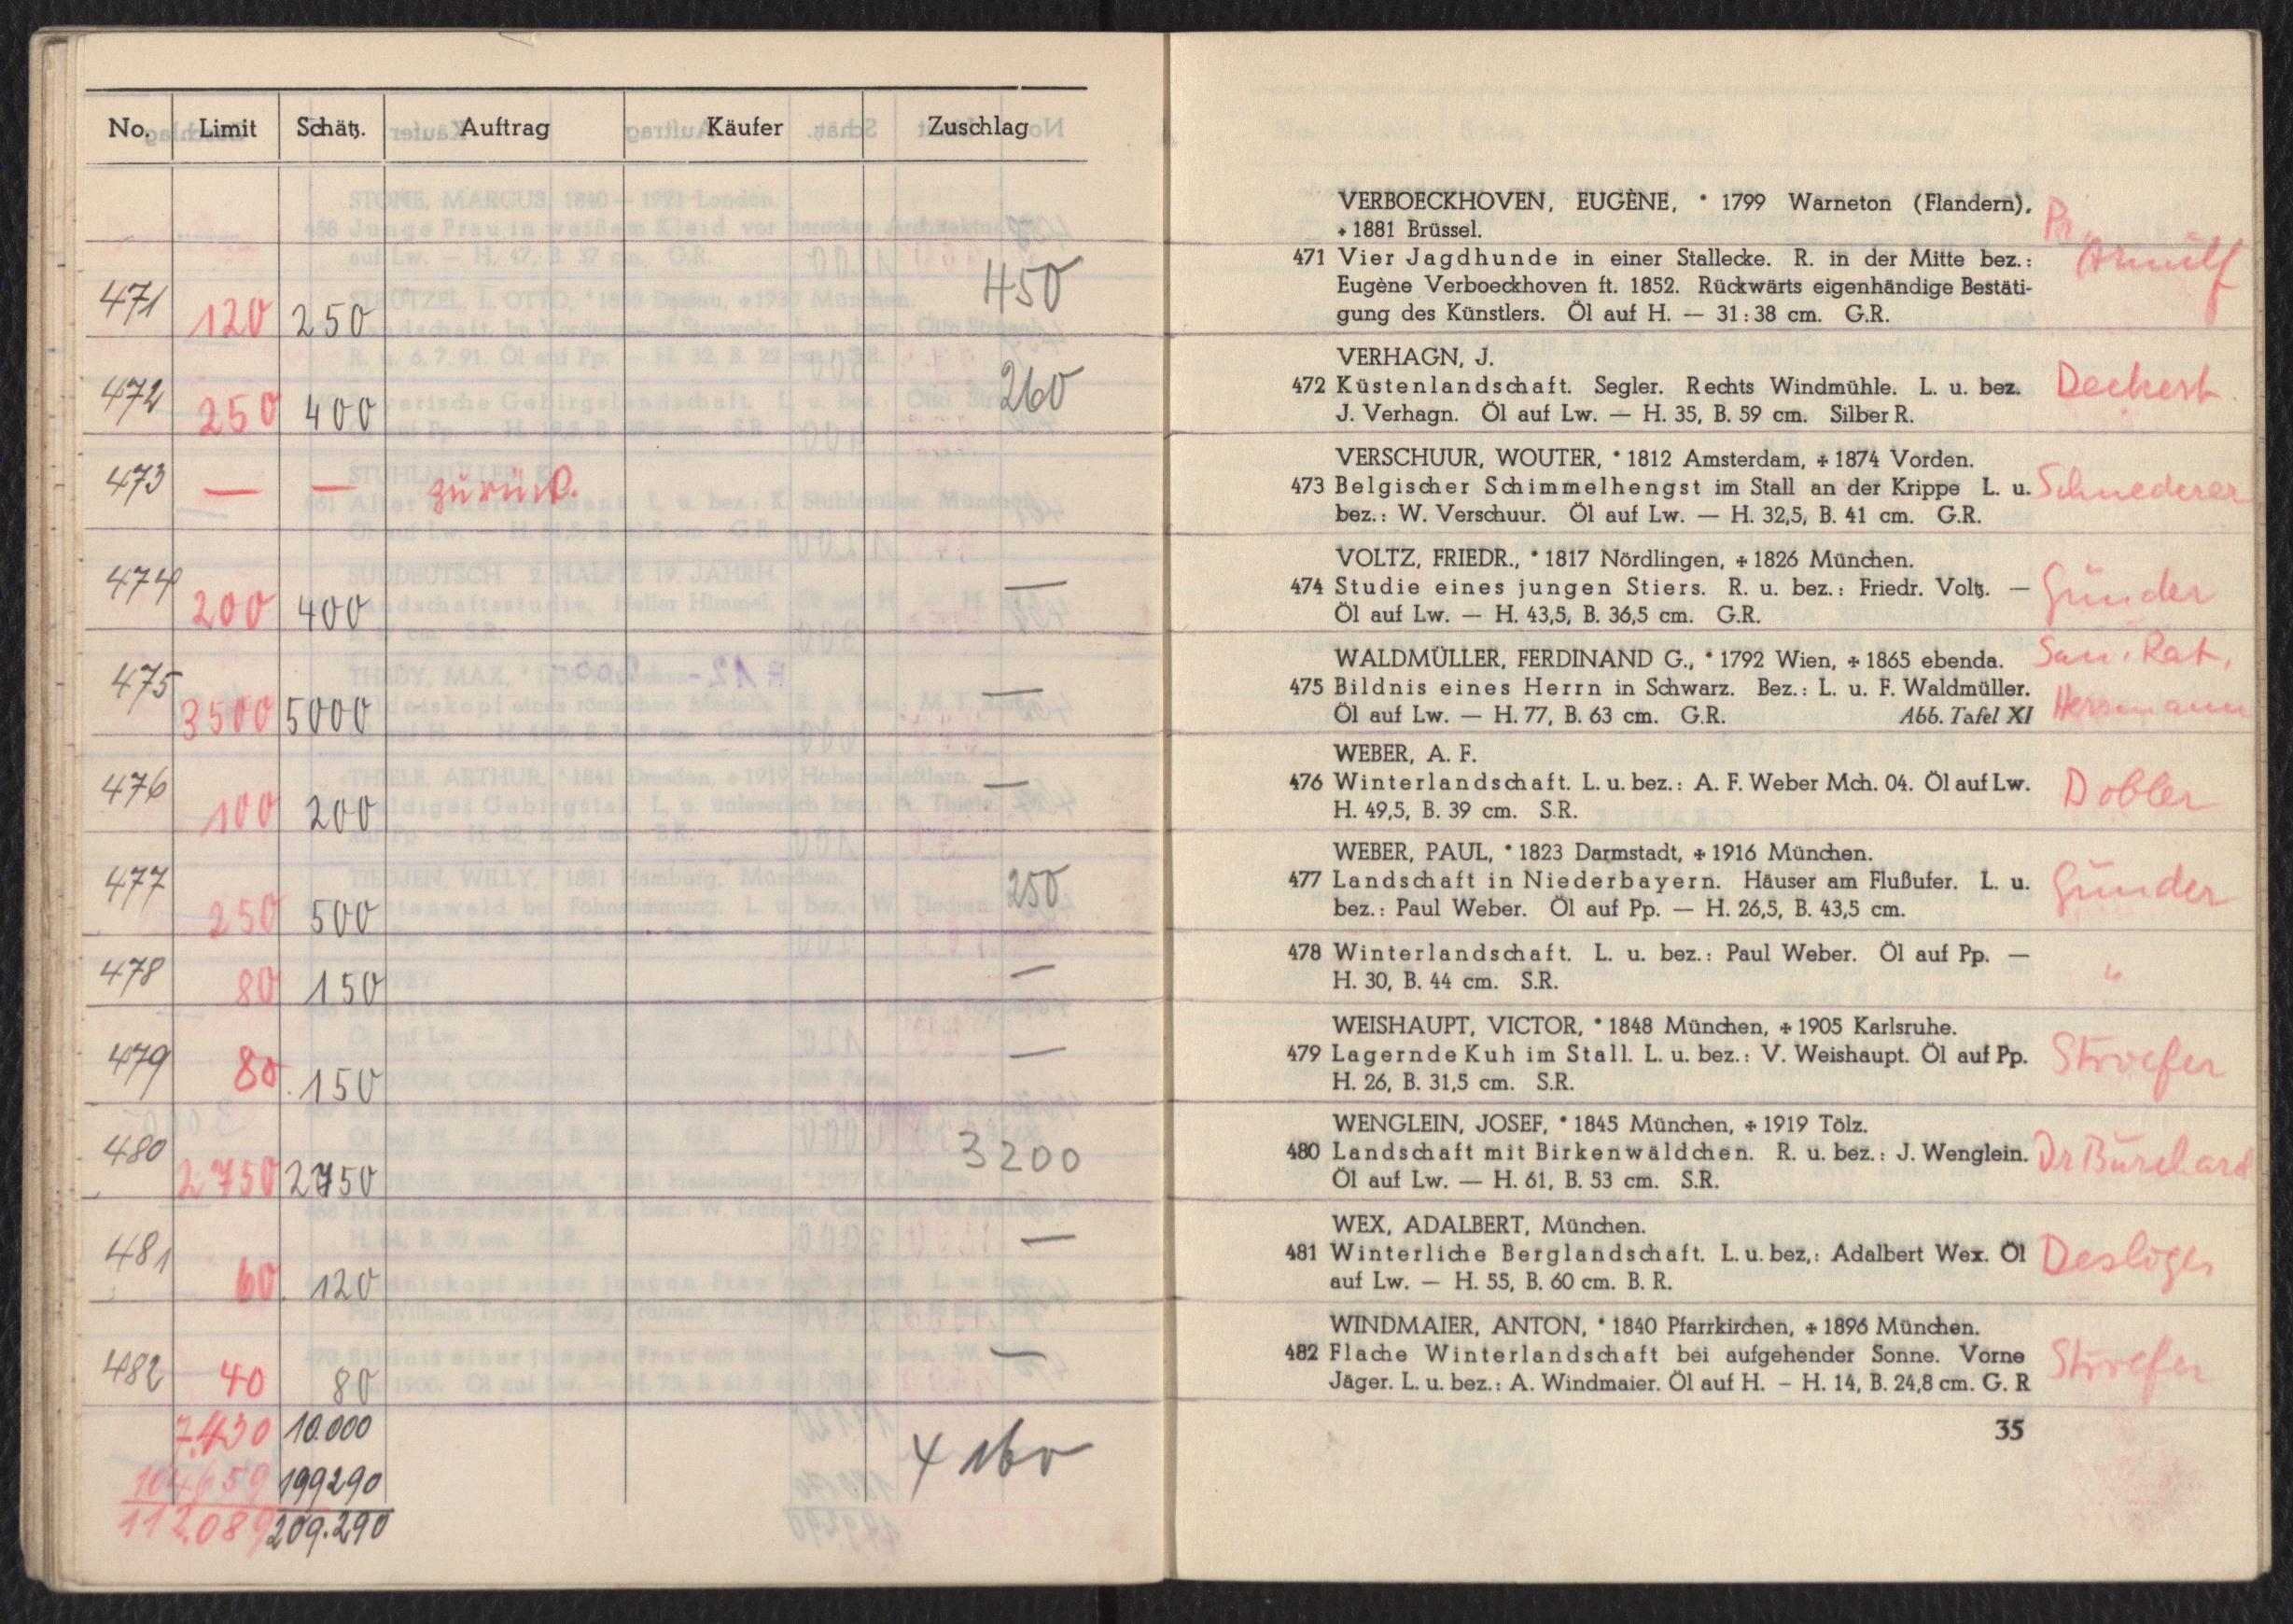 No. Limit Schätz. Auftrag Käufer Zuschlag
471 120 250 450
472 250 400 260
473 — — zurück.
474 200 400 —
475 3500 5000 —
476 100 200 —
477 250 500 250
478 80 150 —
479 80 150 —
480 2750 2750 3200
481 60 120 —
482 40 80 —
7.430 10.000 4160
104659 199290
112.089 209.290
VERBOECKHOVEN, EUGÈNE, * 1799 Warneton (Flandern), Pr.
+ 1881 Brüssel.
471 Vier Jagdhunde in einer Stallecke. R. in der Mitte bez.: Arnulf
Eugène Verboeckhoven ft. 1852. Rückwärts eigenhändige Bestäti-
gung des Künstlers. Öl auf H. — 31:38 cm. G.R.
VERHAGN, J.
472 Küstenlandschaft. Segler. Rechts Windmühle. L. u. bez. Deckert
J. Verhagn. Öl auf Lw. — H. 35, B. 59 cm. Silber R.
VERSCHUUR, WOUTER, * 1812 Amsterdam, + 1874 Vorden.
473 Belgischer Schimmelhengst im Stall an der Krippe L. u. Schnederer
bez.: W. Verschuur. Öl auf Lw. — H. 32,5, B. 41 cm. G.R.
VOLTZ, FRIEDR., * 1817 Nördlingen, + 1826 München.
474 Studie eines jungen Stiers. R. u. bez.: Friedr. Voltz. — Günder
Öl auf Lw. — H. 43,5, B. 36,5 cm. G.R.
WALDMÜLLER, FERDINAND G., * 1792 Wien, + 1865 ebenda. San. Rat.
475 Bildnis eines Herrn in Schwarz. Bez.: L. u. F. Waldmüller. Herrmann
Öl auf Lw. — H. 77, B. 63 cm. G.R. Abb. Tafel XI
WEBER, A. F.
476 Winterlandschaft. L. u. bez.: A. F. Weber Mch. 04. Öl auf Lw. Dobler
H. 49,5, B. 39 cm. S.R.
WEBER, PAUL, * 1823 Darmstadt, + 1916 München.
477 Landschaft in Niederbayern. Häuser am Flußufer. L. u. Günder
bez.: Paul Weber. Öl auf Pp. — H. 26,5, B. 43,5 cm.
478 Winterlandschaft. L. u. bez.: Paul Weber. Öl auf Pp. — "
H. 30, B. 44 cm. S.R.
WEISHAUPT, VICTOR, * 1848 München, + 1905 Karlsruhe.
479 Lagernde Kuh im Stall. L. u. bez.: V. Weishaupt. Öl auf Pp. Stroefer
H. 26, B. 31,5 cm. S.R.
WENGLEIN, JOSEF, * 1845 München, + 1919 Tölz.
480 Landschaft mit Birkenwäldchen. R. u. bez.: J. Wenglein. Dr Burchard
Öl auf Lw. — H. 61, B. 53 cm. S.R.
WEX, ADALBERT, München.
481 Winterliche Berglandschaft. L. u. bez,: Adalbert Wex. Öl
auf Lw. — H. 55, B. 60 cm. B. R.
WINDMAIER, ANTON, * 1840 Pfarrkirchen, + 1896 München.
482 Flache Winterlandschaft bei aufgehender Sonne. Vorne Stroefer
Jäger. L. u. bez.: A. Windmaier. Öl auf H. – H. 14, B. 24,8 cm. G. R
35